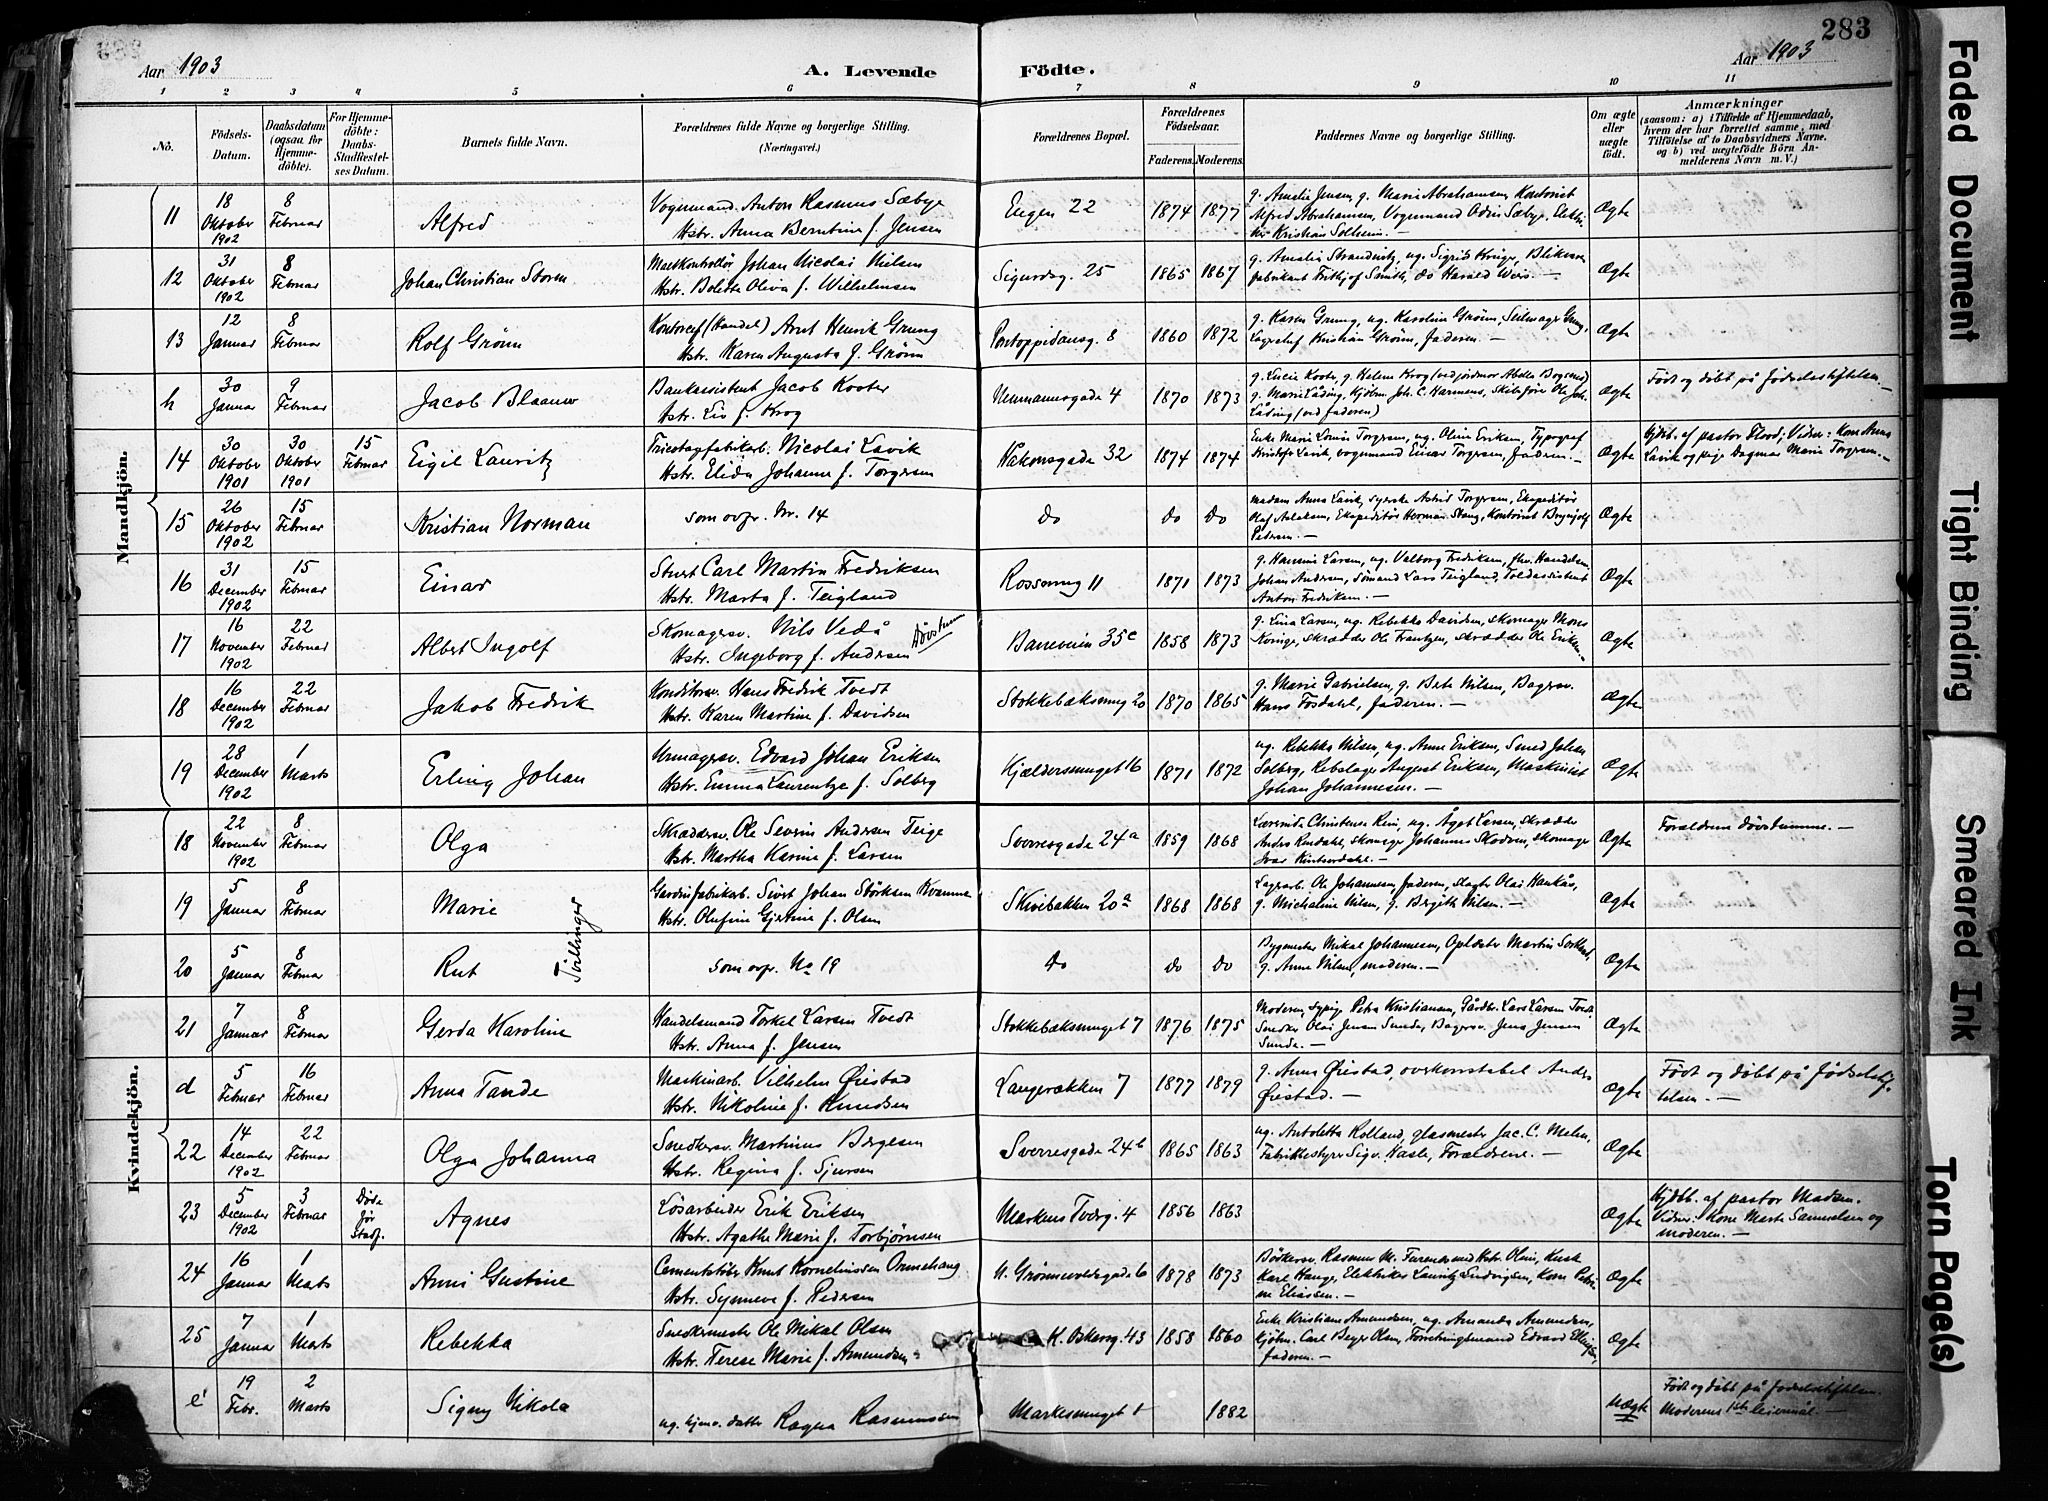 283
Aar 1903
A. Levende Födte.
Aar 1903
1 2 3 4 5 6 7 8 9 10 11
No.
Födsels-
Datum.
Daabsdatum
(ogsaa for
Hjemme-
döbte).
For Hjemme-
döbte:
Daabs-
Stadfæstel-
ses Datum.
Barnets fulde Navn.
Forældrenes fulde Navne og borgerlige Stilling.
(Næringsvei.)
Forældrenes Bopæl.
Forældrenes
Födselsaar.
Faderens. Moderens.
Faddernes Navne og borgerlige Stilling.
Om ægte
eller
uægte
födt.
Anmærkninger
(saasom: a) i Tilfælde af Hjemmedaab,
hvem der har forrettet samme, med
Tilföielse af to Daabsvidners Navne.
og b) ved uægtefödte Börn An-
melderens Navn m. V.)
Mandkjön.
11
18
Oktober
1902
8
Februar
Alfred
Vognmand Anton Rasmus Sæbye
Hstr. Anna Berntine f. Jensen
Engen 22
1874 1877
g. Amalie Jensen, g. Marie Abrahamsen, Kontorist
Alfred Abrahamsen, Vognmand Odin Sæbye, Elektri-
ker Kristian Solheim. —
Ægte
12
31
Oktober
1902
8
Februar
Johan Christian Storm
Johan Nicolai Nilsen
Hstr. Bolette Oliva f. Wilhelmsen
Sigurdsg. 25
1865 1867
g. Amalie Strandvitz, ug. Sigrid Krüger, Blikvare-
fabrikant Frithjof Smith, do Harald Weis. —
Ægte
13
12
Januar
8
Februar
Rolf Grönn
Kontorchef (Handel) Arnt Henrik Grung
Hstr. Karen Augusta f. Grönn
Pontoppidansg. 8
1860 1872
g. Karen Grung, ug. Karoline Grönn, Seilmager Grung,
Lagerchef Kristian Grönn, Faderen. —
Ægte
h
30
Januar
9
Februar
Jacob Blaauw
Bankassistent Jacob Kooter
Hstr. Liv f. Krog
Neumannsgade 4
1870 1873
g. Lucie Kooter, g. Helene Krog (ved jordmor Abelle Bogenes)
g. Marie Låding, Kjöbm. Joh. C. Harmens, Skibsförer Ole Joh.
Låding (ved faderen)
Ægte
Födt og döbt på Födselsstiftelsen. —
14
30
Oktober
1901
30
Oktober
1901
15
Februar
Eigil Lauritz
Tricotagefabrikarb. Nicolai Lavik
Hstr. Elida Johanne f. Torgersen
Håkonsgade 32
1874 1874
Enke Marie Lovise Torgersen, ug. Oline Eriksen, Typograf
Kristofer Lavik, vognmand Einar Torgersen, Faderen. —
Ægte
Hjdb. af pastor Flood; Vidner: Kone Anna
Lavik og pige Dagmar Marie Torgersen. —
15
26
Oktober
1902
15
Februar
Kristian Norman
som ovfr. Nr. 14
do
do do
Madam Anna Lavik, syerske Astrid Torgersen, Ekspeditör
Olaf Aslaksen, Ekspeditör Herman Stang, Kontorist Brynjolf
Pedersen. —
Ægte
16
31
December
1902
15
Februar
Einar
Stuert Carl Martin Fredriksen
Hstr. Marta f. Teigland
Rossesmug 11
1871 1873
g. Hansine Larsen, ug. Valborg Fredriksen, fhv. Handelsm.
Johan Andersen, Sömand Lars Teigland, Toldassistent
Anton Fredriksen. —
Ægte
17
16
November
1902
22
Februar
Albert Ingolf
Skomagersv. Nils Vedå
Hstr. Ingeborg f. Andersen
Dövstumme
Baneveien 35c
1858 1873
g. Lina Larsen, ug. Rebekka Davidsen, skomager Mons
Korsige, skrædder Ole Frantzen, skrædder Ole Eriksen. —
Ægte
18
16
December
1902
22
Februar
Jakob Fredrik
Konditorsv. Hans Fredrik Tvedt
Hstr. Karen Martine f. Davidsen
Stokkebæksmug 20
1870 1865
g. Marie Gabrielsen, g. Berte Nilsen, Bagersv.
Hans Fosdahl, Faderen. —
Ægte
19
28
December
1902
1
Marts
Erling Johan
Urmagersv. Edvard Johan Eriksen
Hstr. Emma Laurentze f. Solberg
Kjeldersmuget 16
1871 1872
ug. Rebekka Nilsen, ug. Anne Eriksen, Smed Johan
Solberg, Rebslager August Eriksen, Maskinist
Johan Johannesen. —
Ægte
Kvindekjön.
18
22
November
1902
8
Februar
Olga
Skræddersv. Ole Severin Andersen Teige
Hstr. Martha Karine f. Larsen
Sverresgade 24a
1859 1868
Lærerinde Christense Rein, ug. Ågot Larsen, skrædder
Anders Rendahl, skomager Johannes Skodven, skomager
Ivar Kintserdahl. —
Ægte
Forældrene dövstumme. —
19
5
Januar
8
Februar
Marie
Tvillinger
Gardinfabrikarb. Sivert Johan Störksen Kvamme
Hstr. Olufine Gjertine f. Olsen
Skivebakken 20a
1868 1868
Lagerarb. Ole Johannesen, Faderen, slagter Olai Haukås,
g. Michaline Nilsen, g. Bergitte Nilsen. —
Ægte
20
5
Januar
8
Februar
Rut
som ovfr. No 19
do
do do
Bygmester Mikal Johannesen, Opsidder Martin Sortland,
g. Anne Nilsen, moderen. —
Ægte
21
7
Januar
8
Februar
Gerda Karoline
Handelsmand Torkel Larsen Tvedt
Hstr. Anna f. Jensen
Stokkebæksmuget 7
1876 1875
Moderen, sypige Petra Kristiansen, Gårdbr. Lars Larsen Tvedt
Snedker Olai Jensen Sunde, Bagersv. Jens Jensen
Sunde. —
Ægte
d
5
Februar
16
Februar
Anna Tande
Maskinarb. Vilhelm Öiestad
Hstr. Nikoline f. Knudsen
Langerækken 7
1877 1879
g. Anna Öiestad, overkonstabel Anders
Öiestad. —
Ægte
Födt og döbt på Födselsstif-
telsen. —
22
14
December
1902
22
Februar
Olga Johanna
Snedkersv. Martinus Børgesen
Hstr. Regina f. Sjursen
Sverresgade 24b
1865 1863
ug. Antoletta Rolland, glasmester Jac. C. Mehn,
Fabrikbestyrer Sigv. Næsle, Forældrene. —
Ægte
23
5
December
1902
3
Februar
Döde
för
Stadf.
Agnes
Lösarbeider Erik Eriksen
Hstr. Agathe Marie f. Torbjörnsen
Markens Tverg. 4
1856 1863
Ægte
Hjdbt. af pastor Madsen.
Vidner: Kone Marte Samuelsen og
moderen. —
24
16
Januar
1
Marts
Anni Gustine
Cementstöber Knut Kornelinssen Ormehaug
Hstr. Synneve f. Pedersen
N. Grönnevoldsgade 6
1878 1873
Bödkersv. Rasmus M. Furenes med Hstr. Oline, Kusk
Karl Hauge, Elektriker Lauritz Ludvigsen, Kone Petri-
ne Eliassen. —
Ægte
25
7
Januar
1
Marts
Rebekka
Snedkermester Ole Mikal Olsen
Hstr. Terese Marie f. Amundsen
K. Oskarsg. 43
1858 1860
Enke Kristiane Amundsen, ug. Amanda Amundsen,
kjöbm. Carl Beyer Olsen, Forretningsmand Edvard Ellingsen,
Faderen. —
Ægte
e
19
Febr.
2
Marts
Signy Nikola
ug. hjmv. datter Ragna Rasmussen
Markesmuget 1
1882
Uægte
Födt og döbt på Födselsstiftelsen.
Moderens 1ste leiermål. —
Faded Document
Tight Binding
Smeared Ink
Torn Page(s)